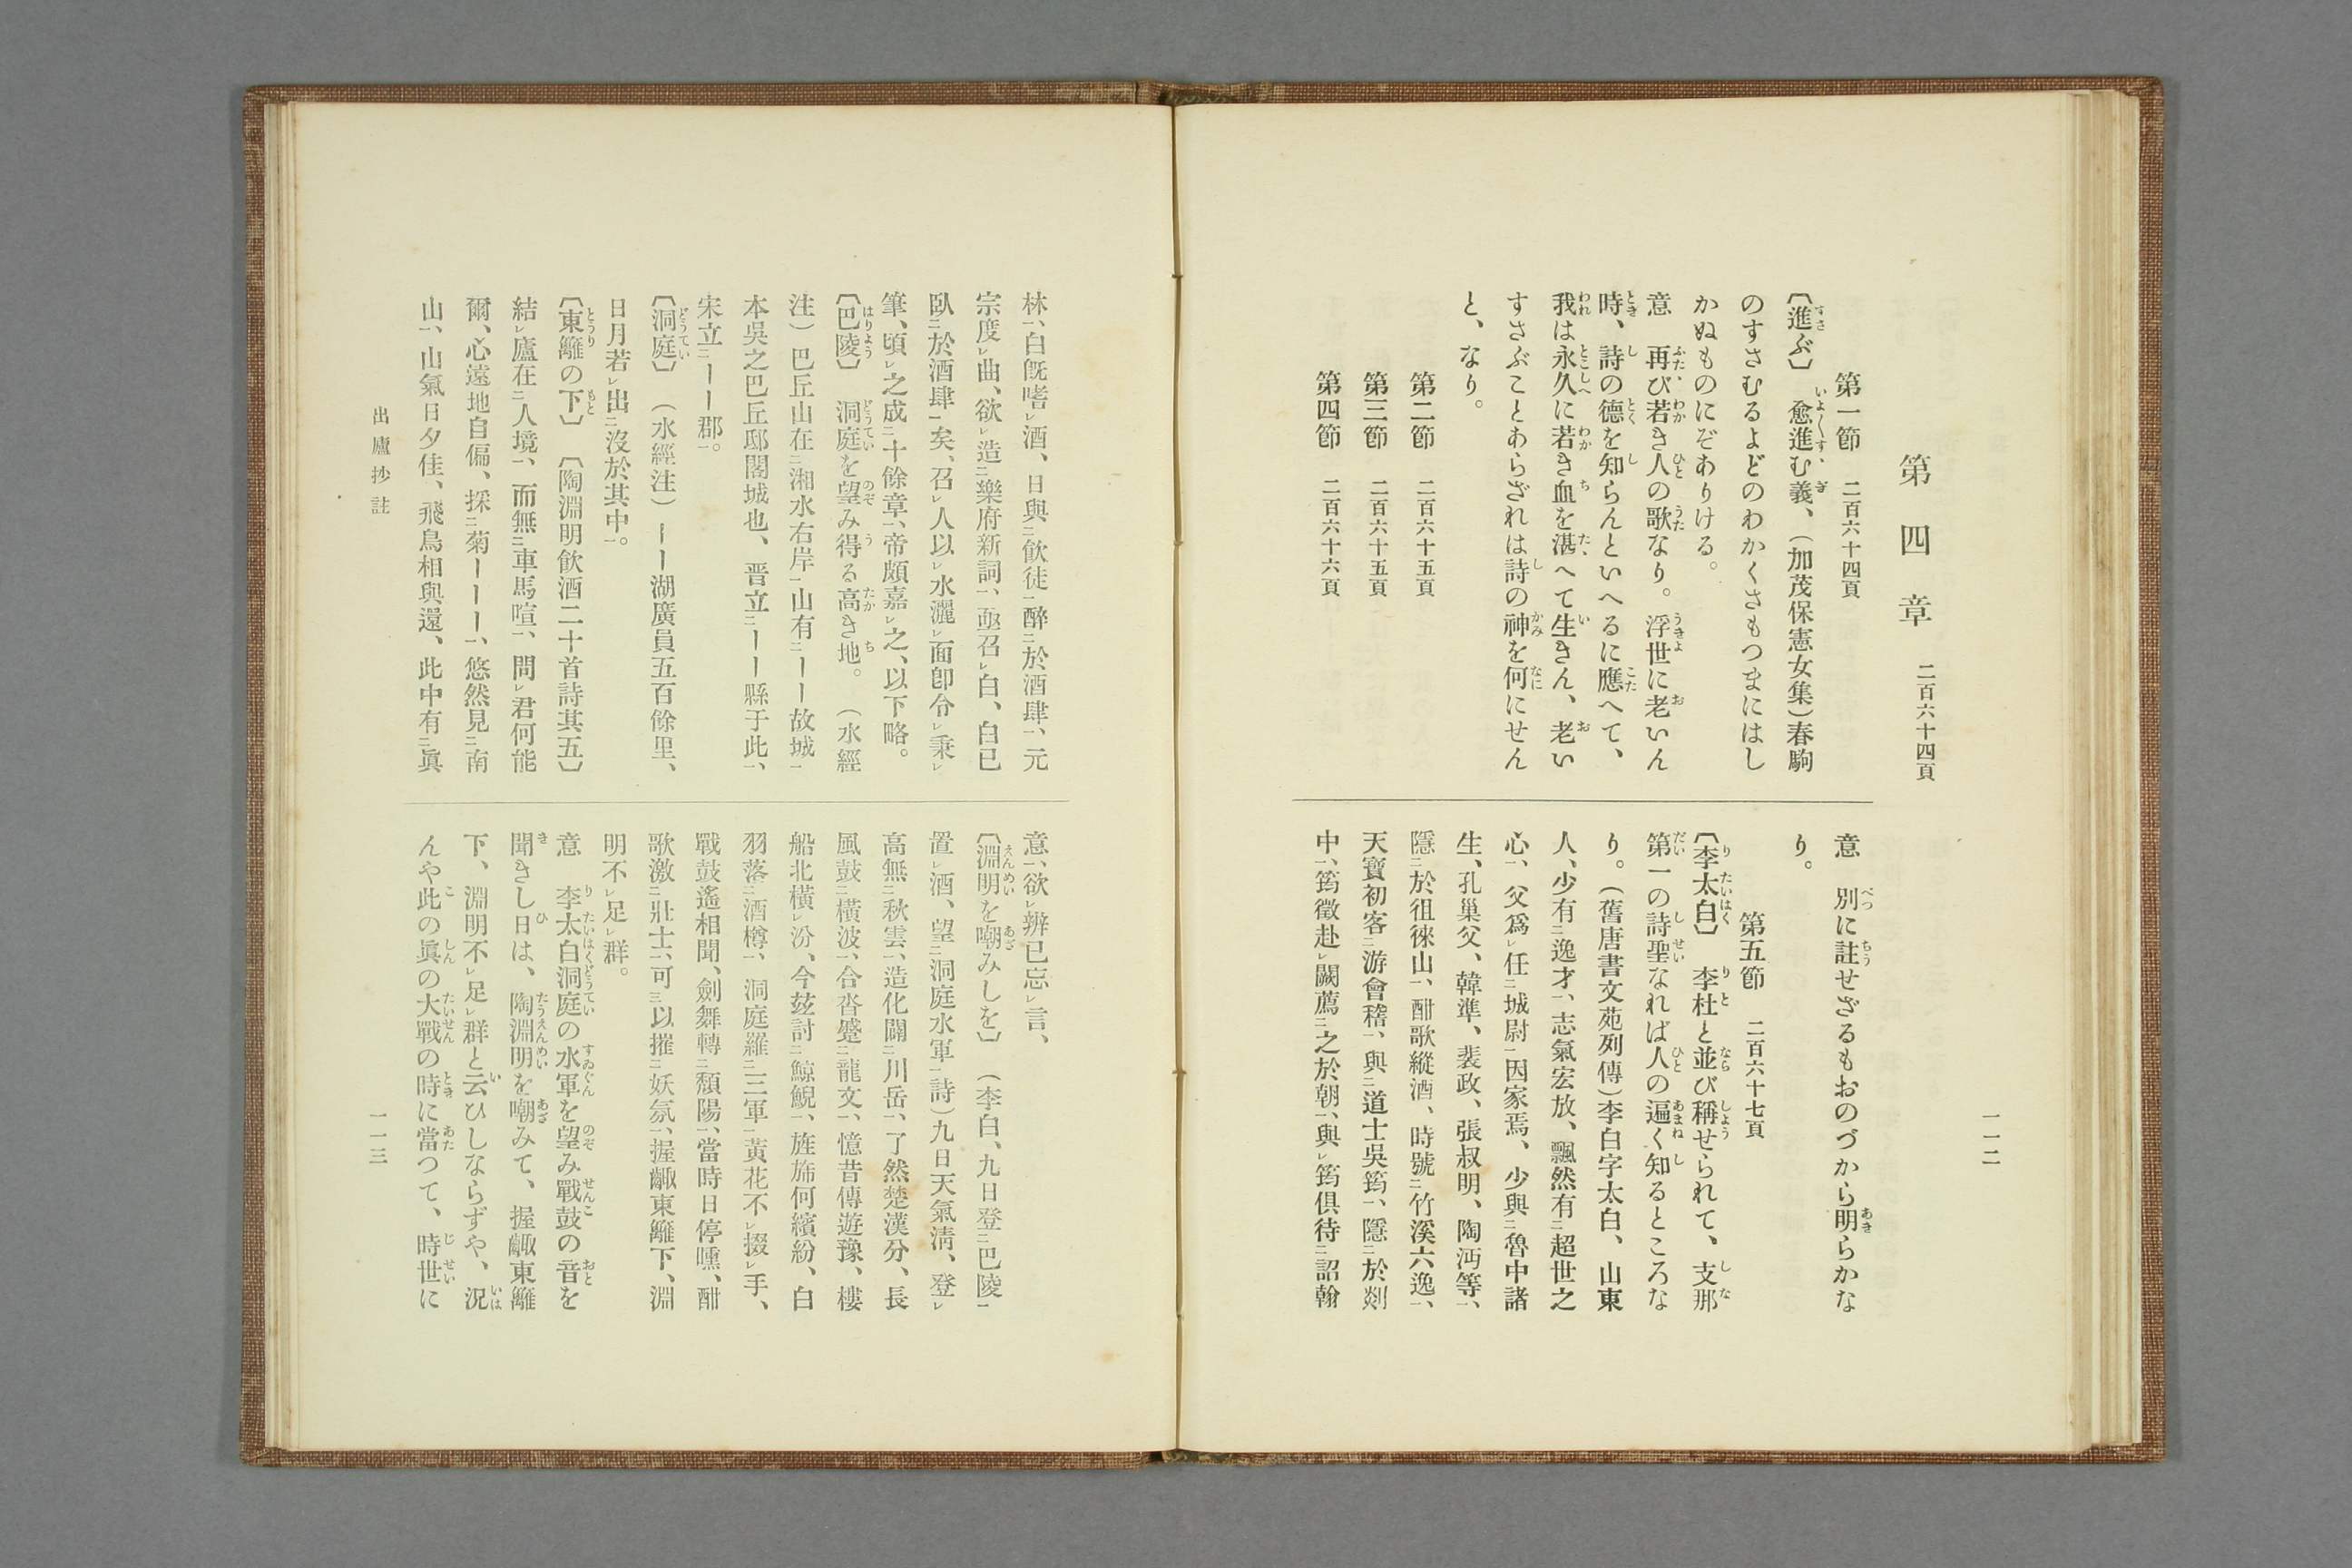 第四章　二百六十四頁
第一節　二百六十四頁
〔進ぶ〕　愈進む義、（加茂保憲女集）春駒
のすさむるよどのわかくさもつまにはし
かぬものにぞありける。
意　再び若き人の歌なり。浮世に老いん
時、詩の德を知らんといへるに應へて、
我は永久に若き血を湛へて生きん、老い
すさぶことあらざれは詩の神を何にせん
と、なり。
第二節　二百六十五頁
第三節　二百六十五頁
第四節　二百六十六頁
意　別に註せざるもおのづから明らかな
り。
第五節　二百六十七頁
〔李太白〕　李杜と並び稱せられて、支那
第一の詩聖なれば人の遍く知るところな
り。（舊唐書文苑列傳）李白字太白、山東
人、少有㆓逸才㆒、志氣宏放、飄然有㆓超世之
心㆒、父爲㆑任㆓城尉㆒因家焉、少與㆓魯中諸
生、孔巢父、韓準、裴政、張叔明、陶沔等㆒、
隱㆓於徂徠山㆒、酣歌縱酒、時號㆓竹溪六逸㆒、
天寶初客㆓游會稽㆒、與㆓道士吳筠㆒、隱㆓於剡
中㆒、筠徵赴㆑闕薦㆓之於朝㆒、與㆑筠俱待㆓詔翰
一一二
林㆒、白旣嗜㆑酒、日與㆓飮徒㆒醉㆓於酒肆㆒、元
宗度㆑曲、欲㆑造㆓樂府新詞㆒、亟召㆑白、白已
臥㆓於酒肆㆒矣、召㆑人以㆑水灑㆑面卽令㆑秉㆑
筆、頃㆑之成㆓十餘章㆒、帝頗嘉㆑之、以下略。
〔巴陵〕　洞庭を望み得る高き地。（水經
注）巴丘山在㆓湘水右岸㆒山有㆓ーー故城㆒
本吳之巴丘邸閣城也、晋立㆓ーー縣于此㆒、
宋立㆓ーー郡㆒。
〔洞庭〕　（水經注）ーー湖廣員五百餘里、
日月若㆑出㆓沒於其中㆒。
〔東籬の下〕　〔陶淵明飮酒二十首詩其五〕
結㆑廬在㆓人境㆒、而無㆓車馬喧㆒、問㆑君何能
爾、心遠地自偏、採㆓菊ーーー㆒、悠然見㆓南
山㆒、山氣日夕佳、飛鳥相與還、此中有㆓眞
意㆒、欲㆑辨已忘㆑言、
〔淵明を嘲みしを〕　（李白、九日登㆓巴陵㆒
置㆑酒、望㆓洞庭水軍㆒詩）九日天氣淸、登㆑
高無㆓秋雲㆒、造化闢㆓川岳㆒、了然楚漢分、長
風鼓㆓橫波㆒、合沓蹙㆓龍文㆒、憶昔傳遊豫、樓
船北橫㆑汾、今玆討㆓鯨鯢㆒、旌旆何繽紛、白
羽落㆓酒樽㆒、洞庭羅㆓三軍㆒黃花不㆑掇㆑手、
戰鼓遙相聞、劍舞轉㆓頽陽㆒、當時日停曛、酣
歌激㆓壯士㆒、可㆔以摧㆓妖氛㆒、握齱東籬下、淵
明不㆑足㆑群。
意　李太白洞庭の水軍を望み戰鼓の音を
聞きし日は、陶淵明を嘲みて、握齱東籬
下、淵明不㆑足㆑群と云ひしならずや、況
んや此の眞の大戰の時に當つて、時世に
出廬抄註
一一三